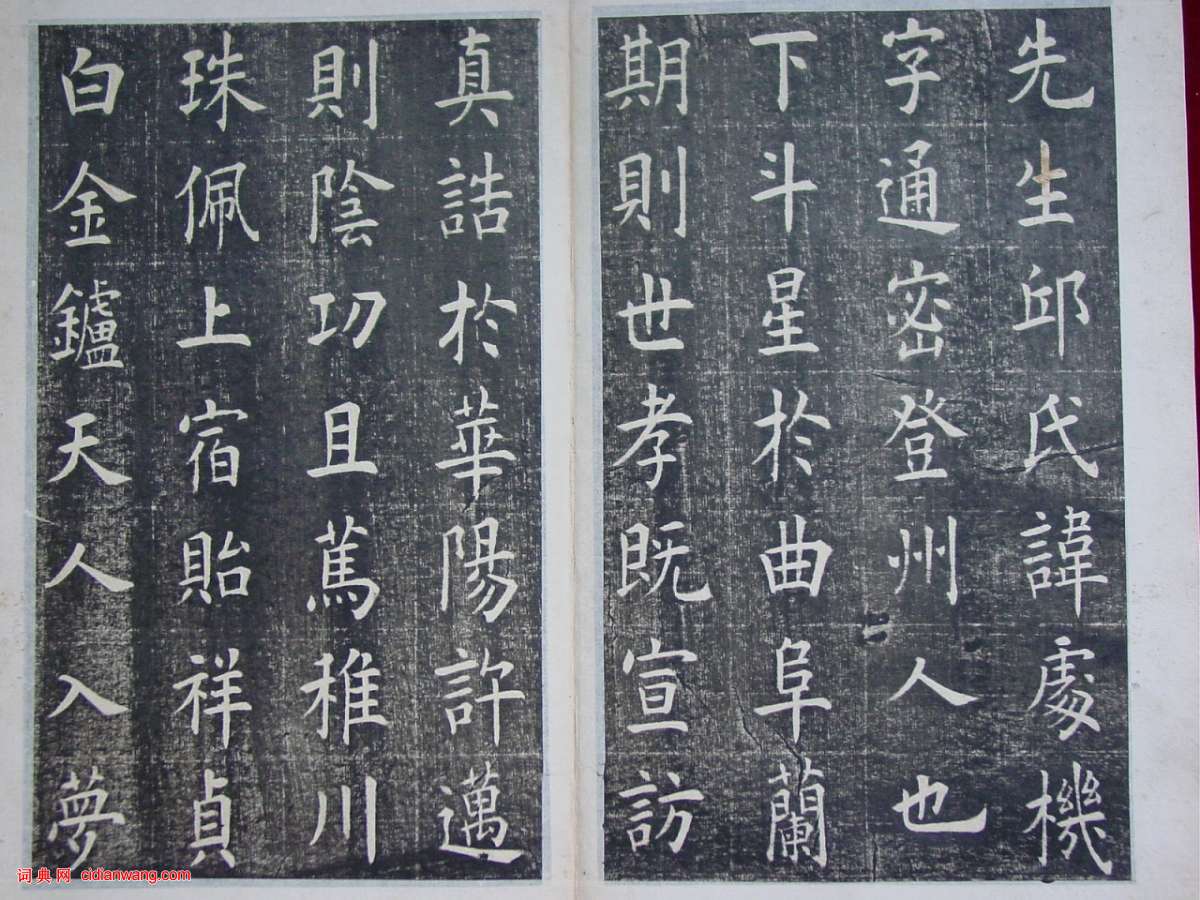 先生邱氏諱處機
字通密登州人也
下斗星於曲阜蘭
期則世孝既宣訪
真誥於華陽許邁
則陰功且篤稚川
珠佩上宿貽祥貞
白金鑪天人入夢
词典网 cidianwang.com